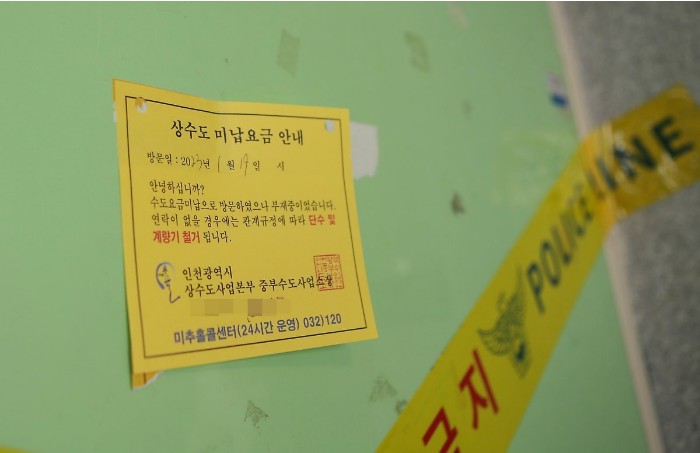 상수도 미납요금 안내
방문일 : 2023년 1월 19일 시
안녕하십니까?
수도요금미납으로 방문하였으나 부재중이었습니다.
연락이 없을 경우에는 관계규정에 따라 단수 및
계량기 철거 됩니다.
인천광역시
상수도사업본부 중부수도사업소장
미추홀콜센터(24시간 운영) 032)120
POLICE LINE
근지